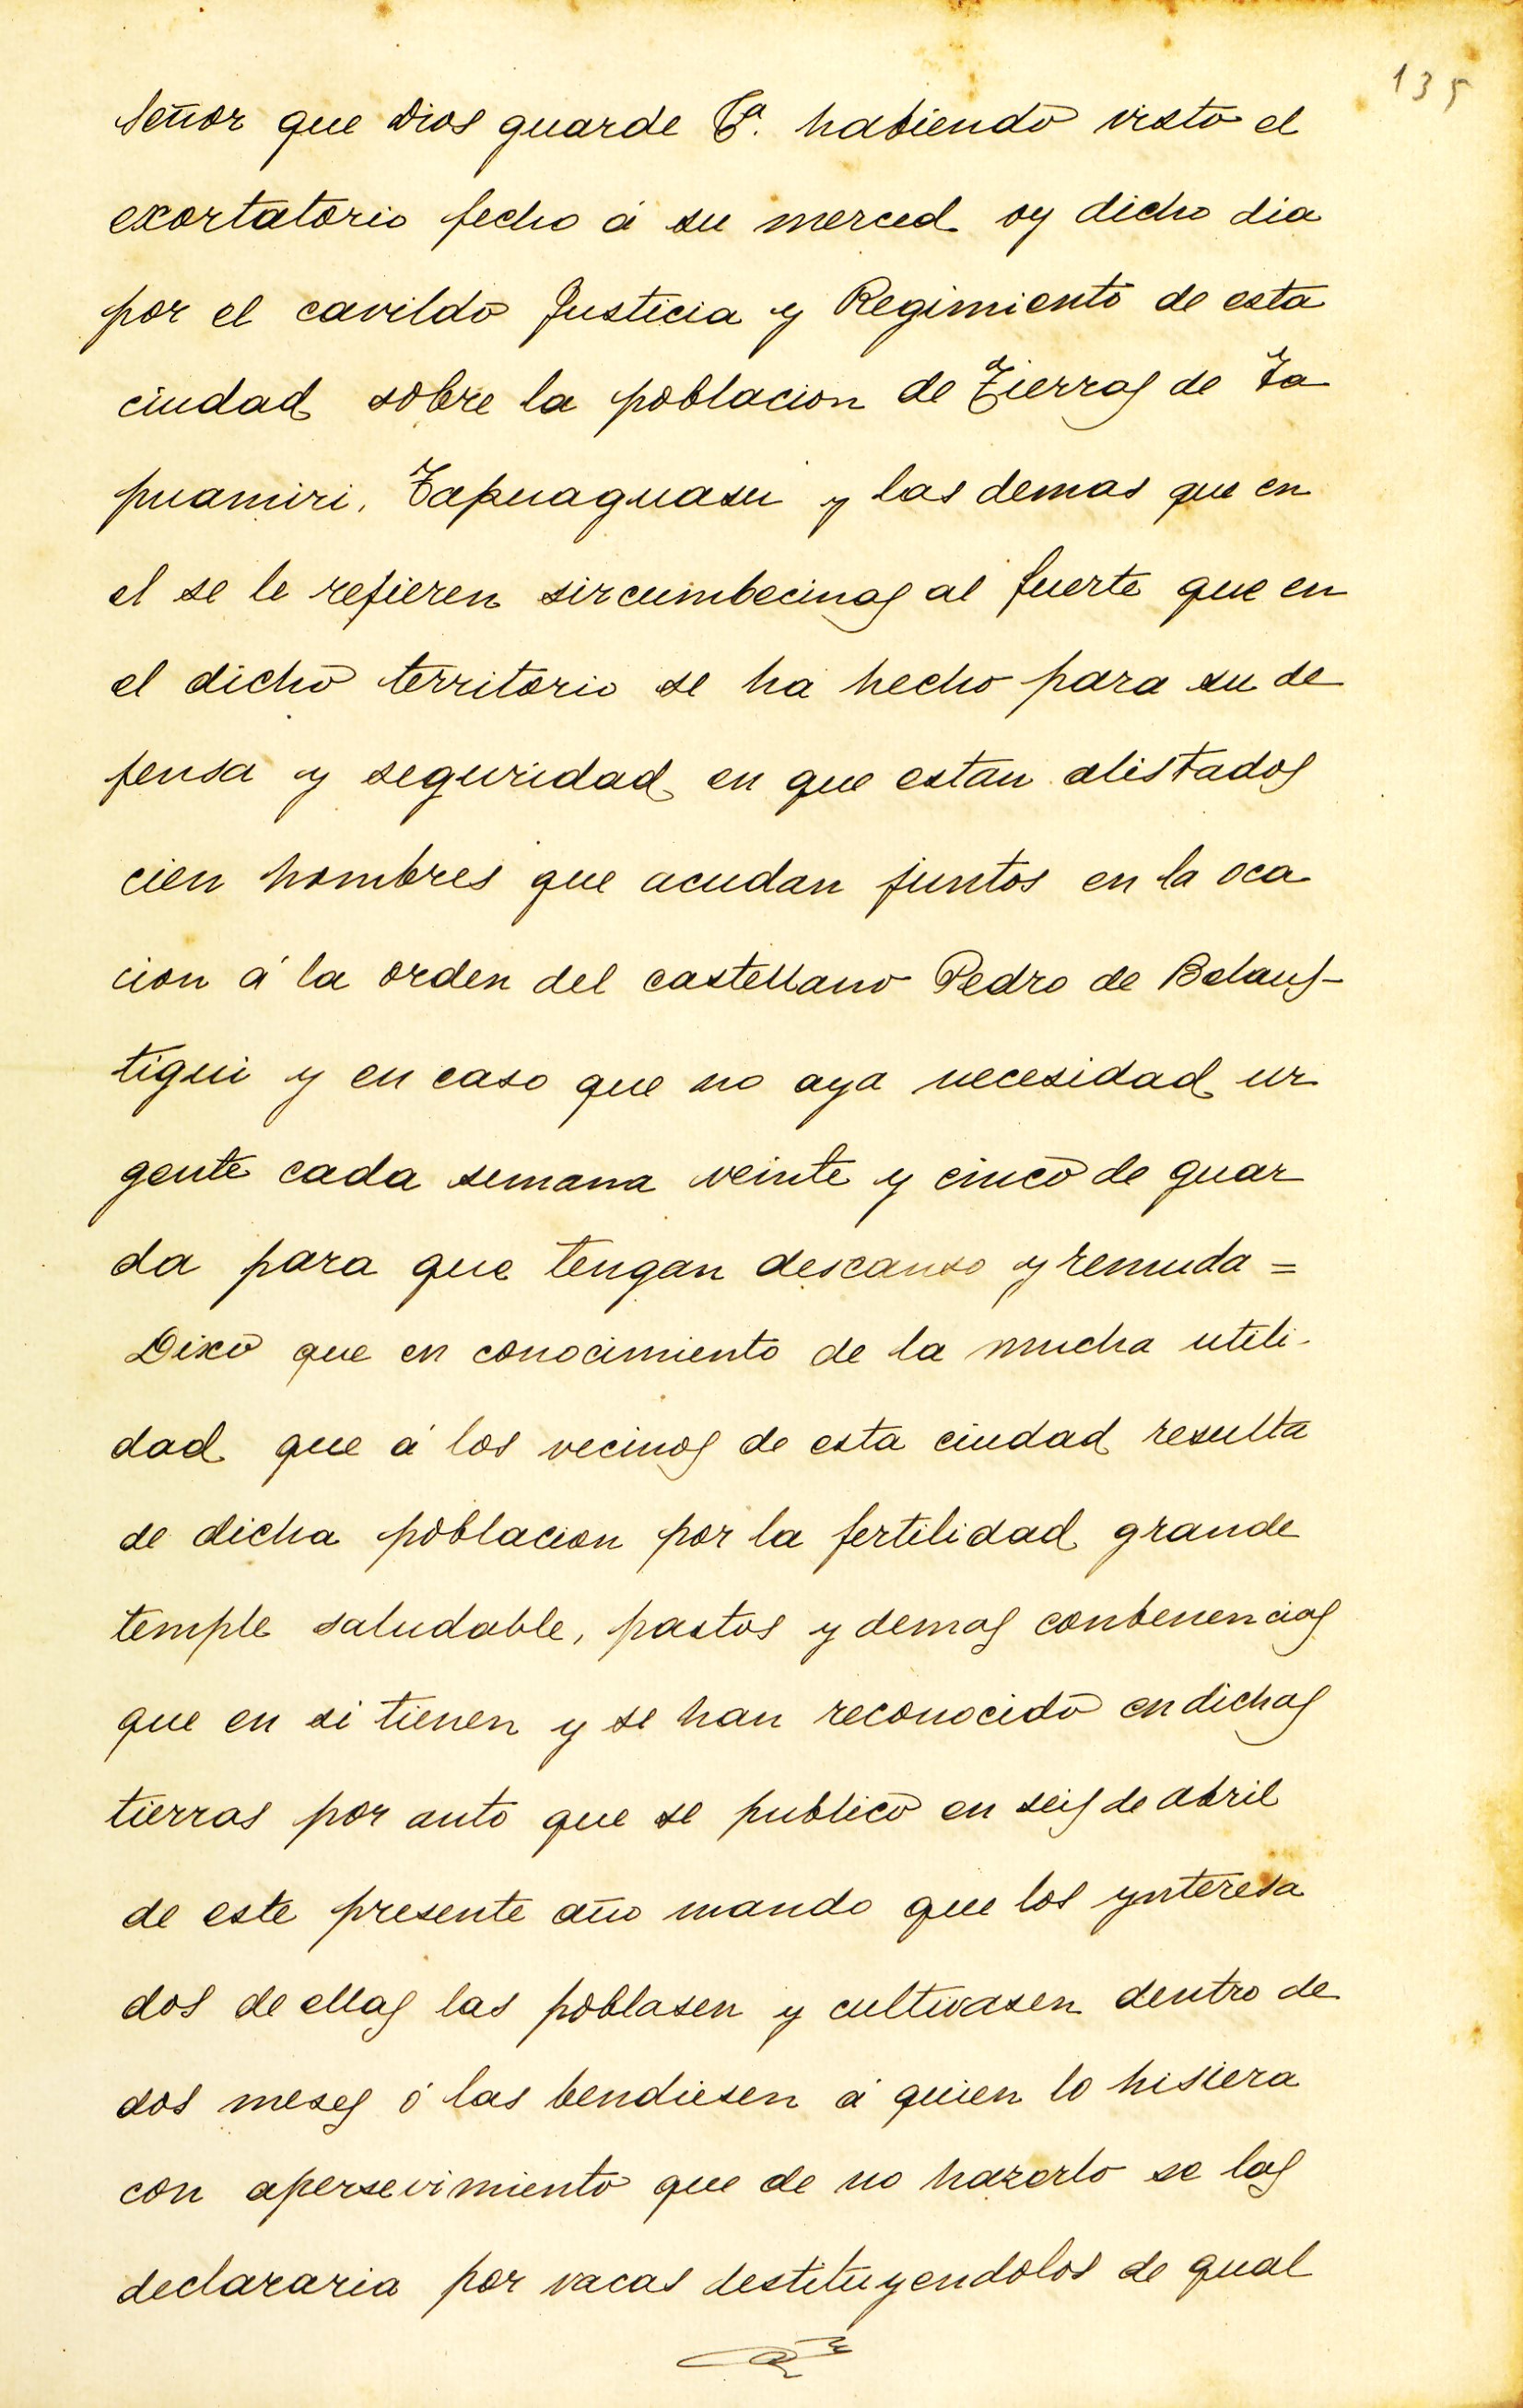 135
Señor que Dios guarde &ª. habiendo visto el
exortatorio fecho á su merced oy dicho dia
por el cavildo Justicia y Regimiento de esta
ciudad sobre la poblacion de Tierras de Ta
puamiri, Tapuaguasu y las demas que en
el se le refieren sircumbecinas al fuerte que en
el dicho territorio se ha hecho para su de
fensa y seguridad en que estan alistados
cien hombres que acudan juntos en la oca
cion á la orden del castellano Pedro de Belaus-
tigui y en caso que no aya necesidad ur
gente cada semana veinte y cinco de guar
da para que tengan descanso y remuda =
Dixo que en conocimiento de la mucha utili-
dad que á los vecinos de esta ciudad resulta
de dicha poblacion por la fertilidad grande
temple saludable, pastos y demas conbenencias
que en si tienen y se han reconocido en dichas
tierras por auto que se publicó en seis de abril
de este presente año mando que los ynteresa
dos de ellas las poblasen y cultivasen dentro de
dos meses ó las bendiesen á quien lo hisiera
con apersevimiento que de no hazerlo se las
declararia por vacas destituyendolos de qual